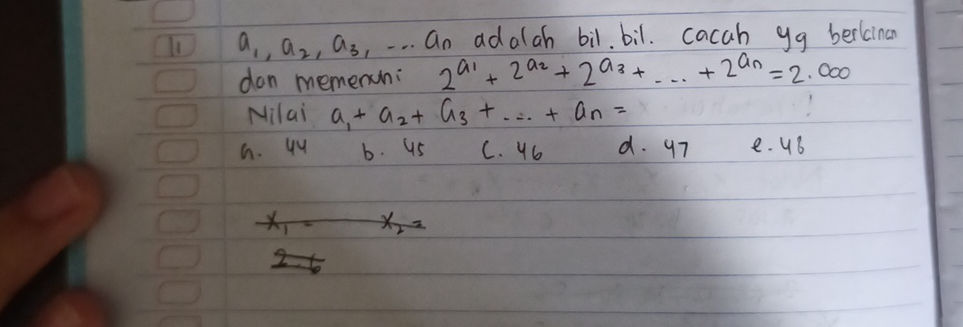 11 a₁, a₂, a₃, ... an adalah bil. bil. cacah yg berlainan
dan memenuhi 2^a1 + 2^a2 + 2^a3 + ... + 2^an = 2.000
Nilai a₁ + a₂ + a₃ + ... + an =
a. 44 b. 45 c. 46 d. 47 e. 48
x₁ = x₂ =